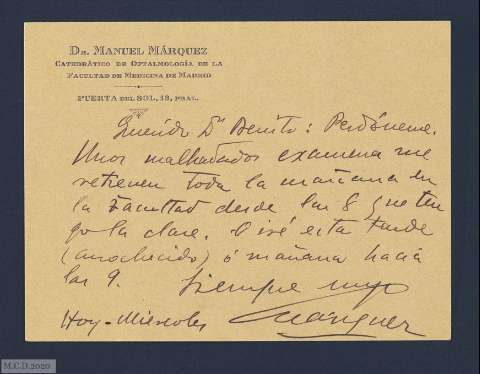 DR. MANUEL MÁRQUEZ
CATEDRÁTICO DE OFTALMOLOGÍA DE LA
FACULTAD DE MEDICINA DE MADRID
PUERTA DEL SOL, 13, PRAL.
Querido Dn Benito: Perdóneme.
Unos malhadados examenes me
retienen toda la mañana en
la Facultad desde las 8 que ten
go la clase. O iré esta tarde
(anochecido) ó mañana hacia
las 9. Siempre suyo
Hoy-Miércoles Márquez
M.C.D.2020